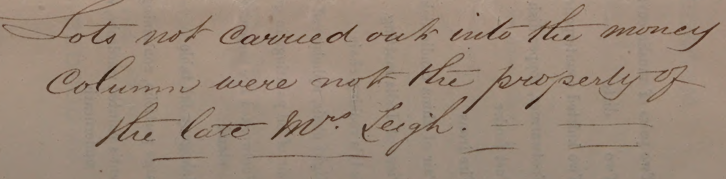 Lots not carried out into the money
column were not the property of
the late Mrs. Leigh.